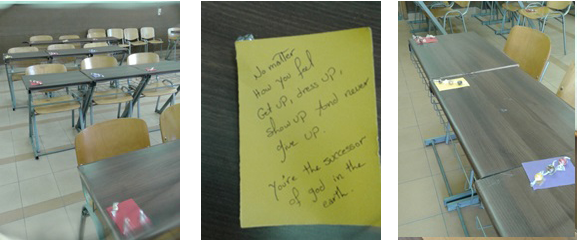 No matter
How you feel
Get up, dress up,
show up And never
give up.
You're the successor
of god in the
earth.